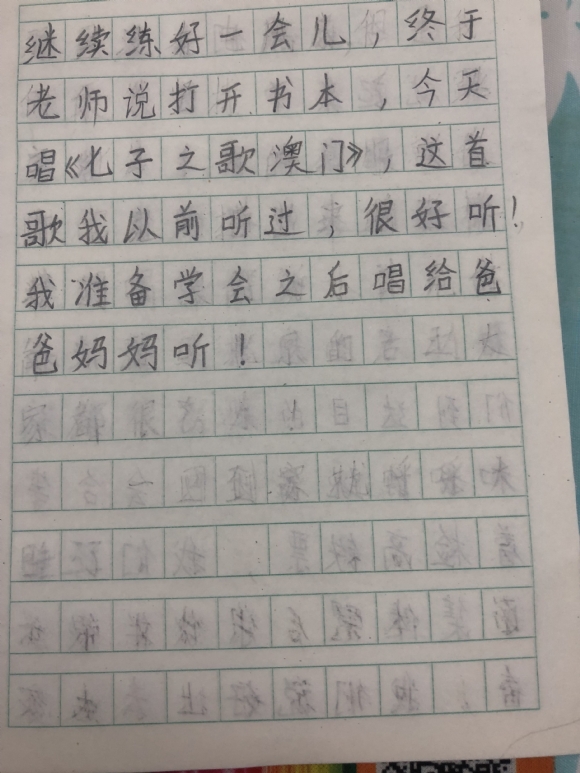 继续练好一会儿，终于
老师说打开书本，今天
唱《七子之歌澳门》，这首
歌我以前听过，很好听！
我准备学会之后唱给爸
爸妈妈听！